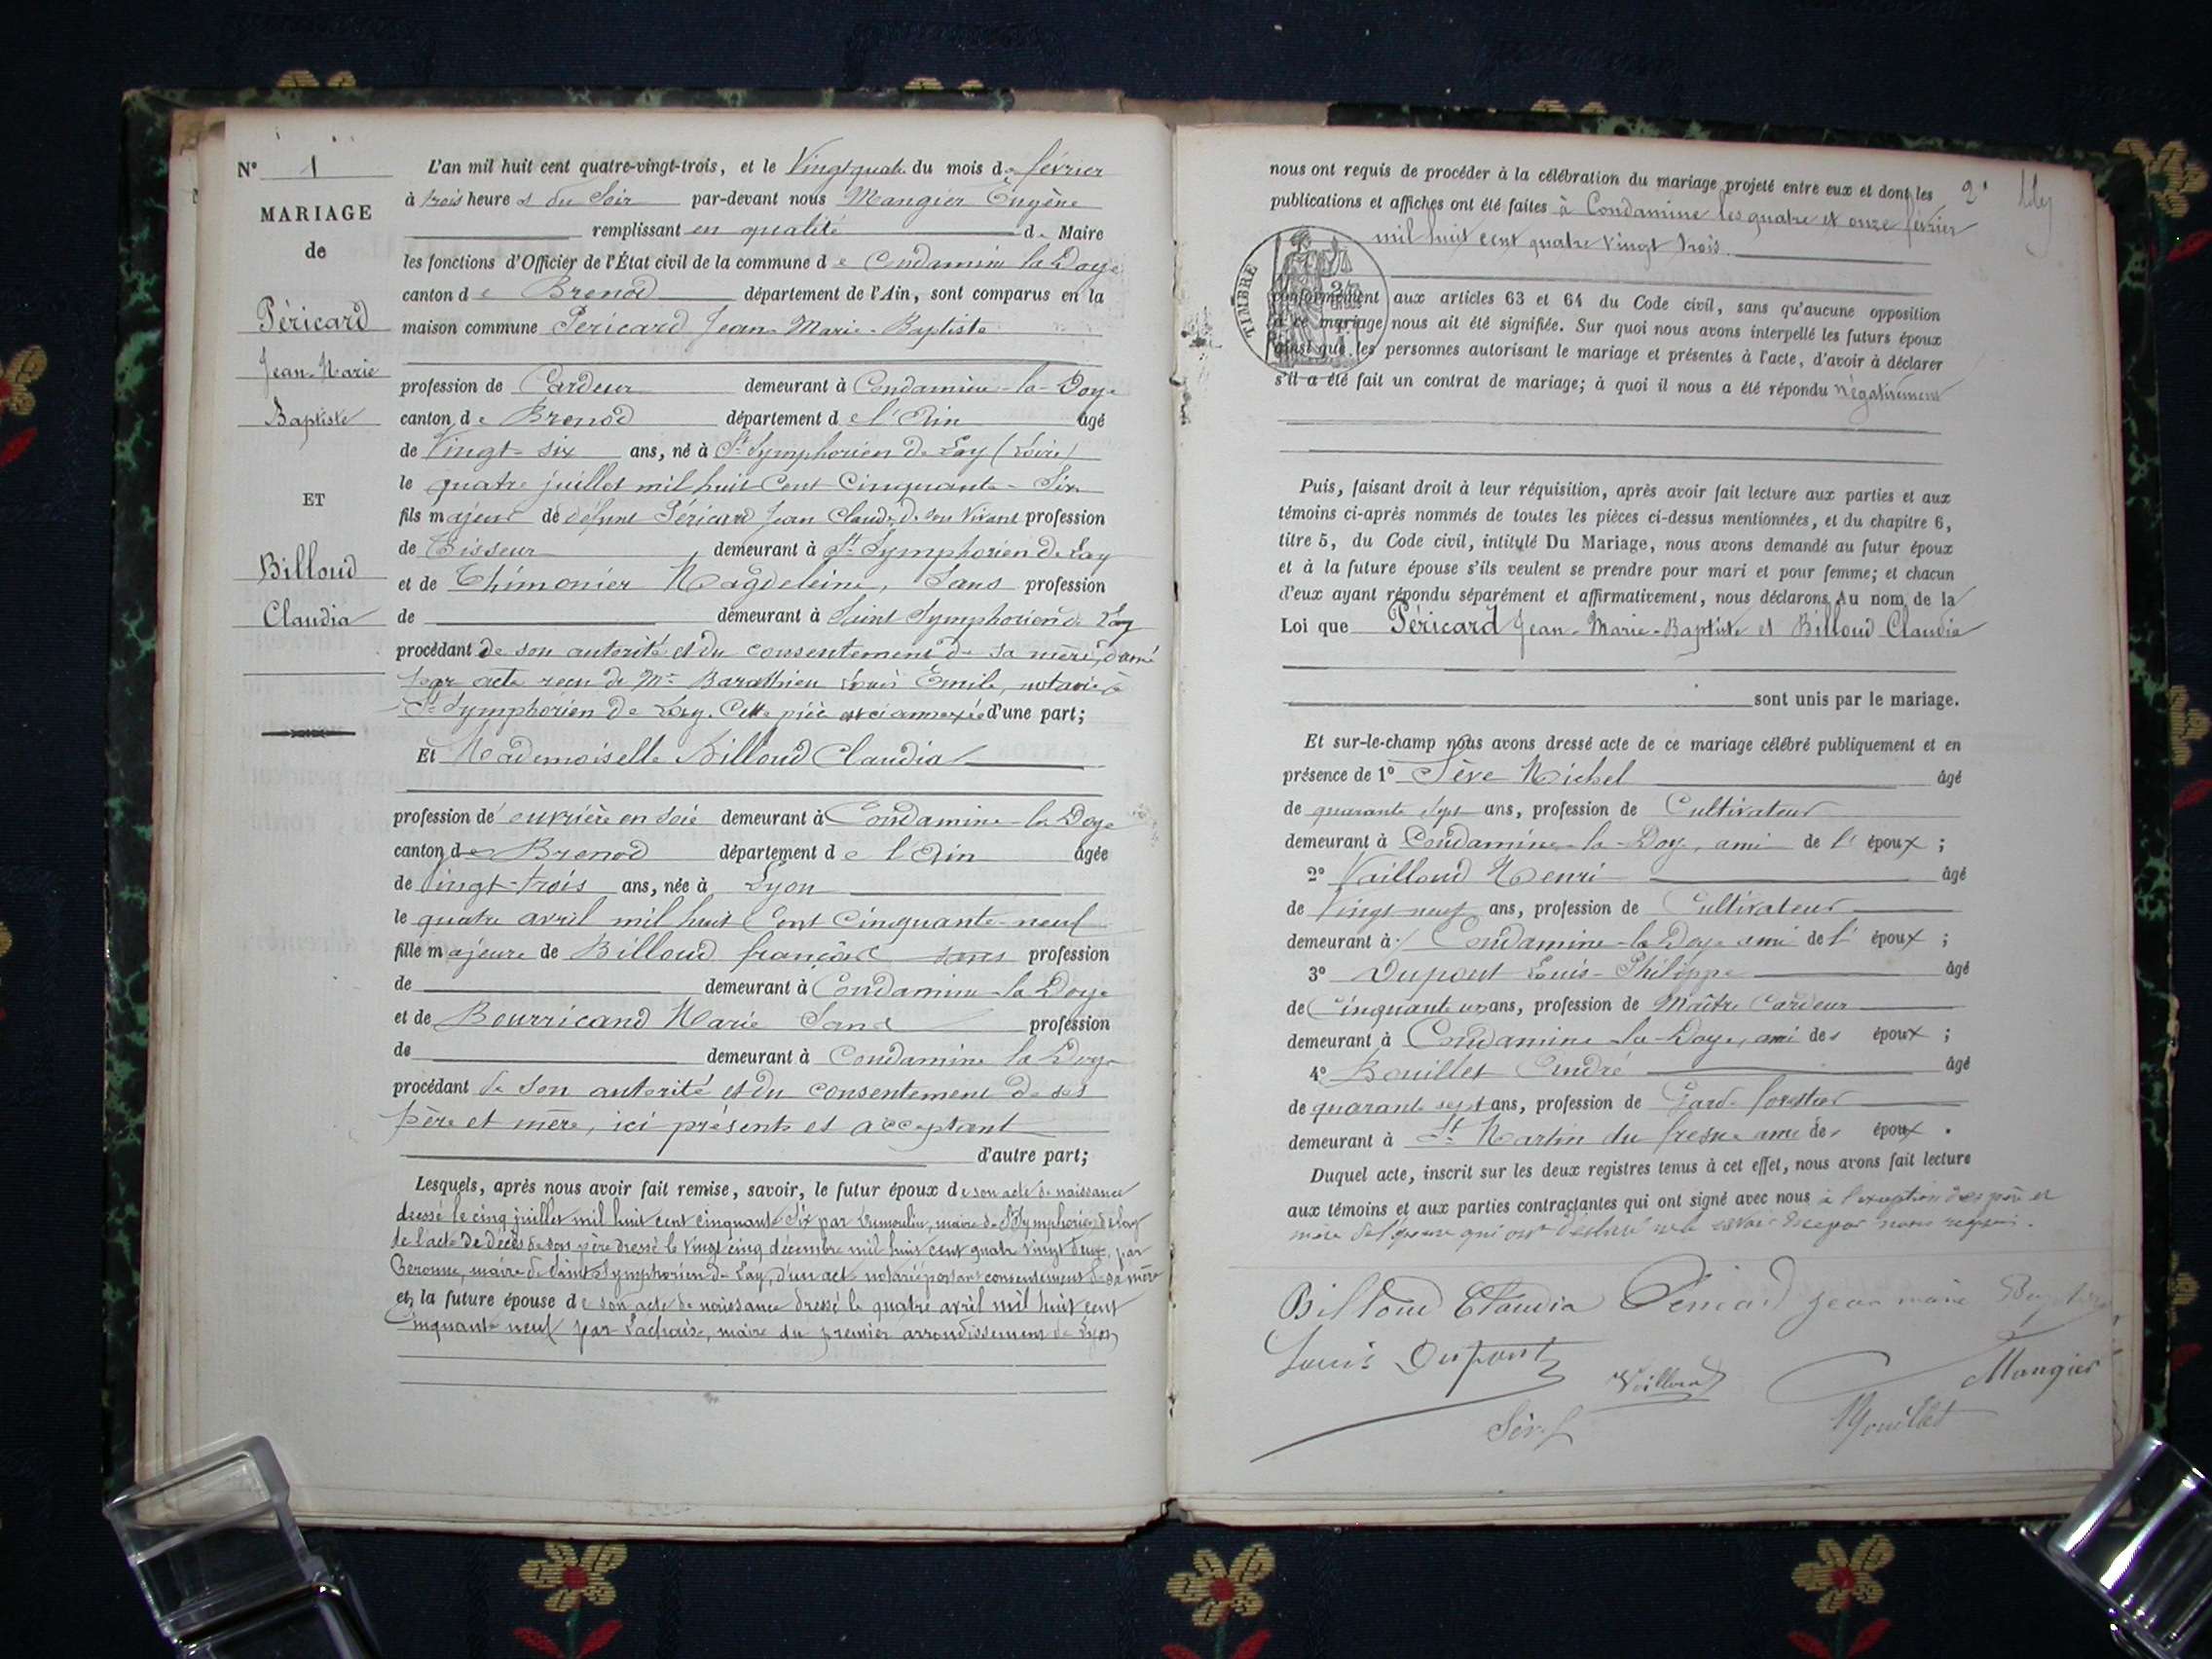 N° 1
MARIAGE
de
Péricard
Jean-Marie
Baptiste
ET
Billoud
Claudia
L'an mil huit cent quatre-vingt-trois, et le Vingt quatre du mois de février
à trois heures du Soir par-devant nous Mangier Eugène
remplissant en qualité de Maire
les fonctions d'Officier de l'État civil de la commune de Condamine la Doye
canton de Brenod département de l'Ain, sont comparus en la
maison commune Péricard Jean-Marie-Baptiste
profession de Cardeur demeurant à Condamine-la-Doye
canton de Brenod département de l'Ain âgé
de Vingt-six ans, né à St Symphorien de Lay (Loire)
le quatre juillet mil huit cent cinquante-six
fils majeur de défunt Péricard Jean Claude, de son vivant profession
de Tisseur, demeurant à St Symphorien de Lay
et de Thimonier Magdeleine, sans profession
de demeurant à Saint Symphorien de Lay
procédant de son autorité et du consentement de sa mère, donné
par acte recu de Me Louis Emile, notaire à
St Symphorien de Lay. Cette pièce est ci annexée d'une part;
Et Mademoiselle Billoud Claudia
profession de ouvrière en soie demeurant à Condamine-la-Doye
canton de Brenod département de l'Ain âgée
de Vingt-trois ans, née à Lyon
le quatre avril mil huit cent cinquante-neuf
fille majeure de Billoud françois sans profession
de demeurant à Condamine-la-Doye
et de Bourricand Marie Sans profession
de demeurant à Condamine la Doye
procédant de son autorité et du consentement de ses
père et mère, ici présents et acceptant
d'autre part;
Lesquels, après nous avoir fait remise, savoir, le futur époux de son acte de naissance
dressé le cinq juillet mil huit cent cinquante six par Dumoulin, maire de St Symphorien de Lay
de l'acte de décès de son père dressé le vingt cinq décembre mil huit cent quatre vingt deux, par
maire de Saint Symphorien de Lay, d'un acte notarié portant consentement de sa mère
et, la future épouse de son acte de naissance dressé le quatre avril mil huit cent
cinquante neuf par Lachaise, maire du premier arrondissement de Lyon
2e
nous ont requis de procéder à la célébration du mariage projeté entre eux et dont les
publications et affiches ont été faites à Condamine les quatre et onze février
mil huit cent quatre vingt trois.
TIMBRE
conformément aux articles 63 et 64 du Code civil, sans qu'aucune opposition
à ce mariage nous ait été signifiée. Sur quoi nous avons interpellé les futurs époux
ainsi que les personnes autorisant le mariage et présentes à l'acte, d'avoir à déclarer
s'il a été fait un contrat de mariage; à quoi il nous a été répondu négativement
Puis, faisant droit à leur réquisition, après avoir fait lecture aux parties et aux
témoins ci-après nommés de toutes les pièces ci-dessus mentionnées, et du chapitre 6,
titre 5, du Code civil, intitulé Du Mariage, nous avons demandé au futur époux
et à la future épouse s'ils veulent se prendre pour mari et pour femme; et chacun
d'eux ayant répondu séparément et affirmativement, nous déclarons Au nom de la
Loi que Péricard Jean-Marie-Baptiste et Billoud Claudia
sont unis par le mariage.
Et sur-le-champ nous avons dressé acte de ce mariage célébré publiquement et en
présence de 1° Sève Michel âgé
de quarante sept ans, profession de Cultivateur
demeurant à Condamine-la-Doye, ami de l'époux;
2° Vailloud Henri âgé
de Vingt neuf ans, profession de Cultivateur
demeurant à Condamine-la-Doye ami de l'époux;
3° Dupont Louis-Philippe âgé
de Cinquante un ans, profession de Maître Cardeur
demeurant à Condamine la-Doye, ami des époux;
4° Bouillet André âgé
de quarante sept ans, profession de Garde forestier
demeurant à St Martin du fresne ami des époux.
Duquel acte, inscrit sur les deux registres tenus à cet effet, nous avons fait lecture
aux témoins et aux parties contractantes qui ont signé avec nous à l'exception des père et
mère de l'épouse qui ont déclaré ne le savoir de ce par nous requis.
Billoud Claudia Péricard jean marie Baptiste
Louis Dupont
Vailloud
Mangier
Sève
Bouillet